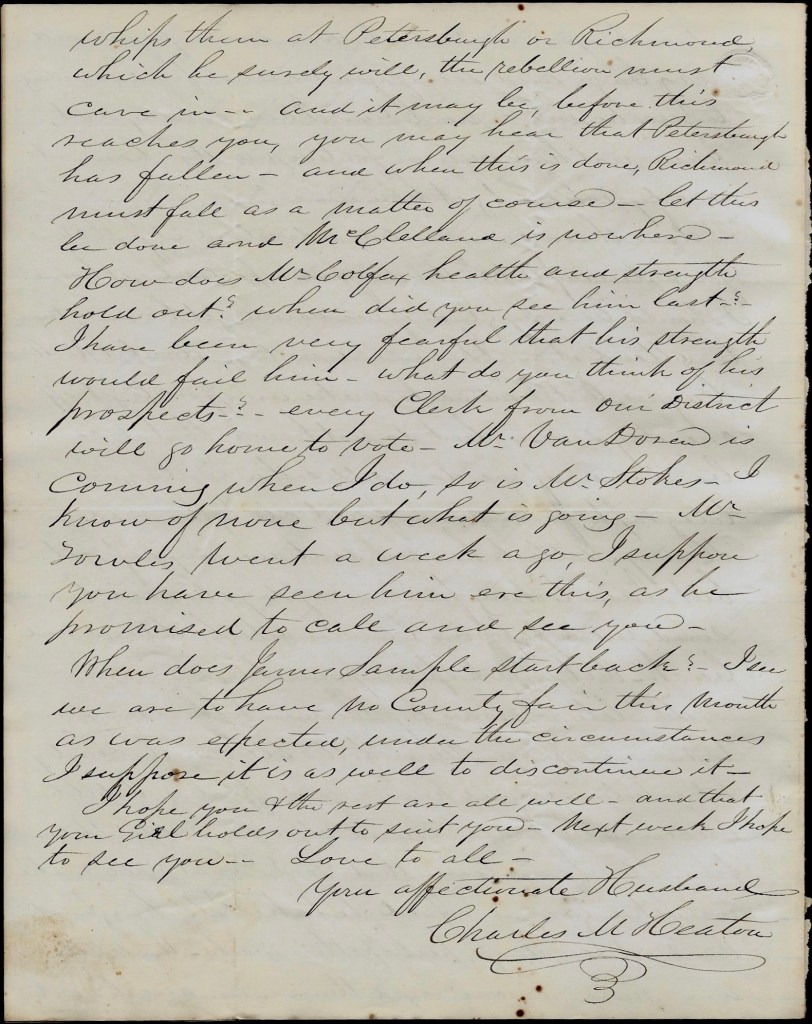 whips them at Petersburgh or Richmond,
which he surely will, the rebellion must
cave in -- and it may be, before this
reaches you, you may hear that Petersburgh
has fallen - and when this is done, Richmond
must fall as a matter of course - let this
be done and McClelland is nowhere -
How does Mr Colfax health and strength
hold out? when did you see him last-?-
I have been very fearful that his strength
would fail him - what do you think of his
prospects-?- every Clerk from our District
will go home to vote - Mr. VanDoren is
coming when I do, so is Mr. Stokes - I
know of none but what is going - Mr
Towles went a week ago, I suppose
you have seen him ere this, as he
promised to call and see you -
When does James Sample start back? - I see
we are to have no County fair this month
as was expected, under the circumstances
I suppose it is as well to discontinue it -
I hope you & the rest are all well - and that
your Girl holds out to suit you - Next week I hope
to see you -- Love to all -
Your affectionate Husband
Charles M Heaton